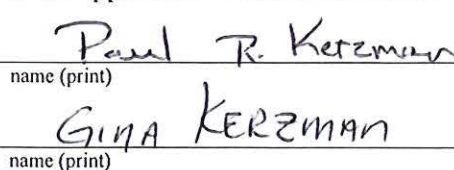 Paul R. Kerzman
name (print)
GINA KERZMAN
name (print)